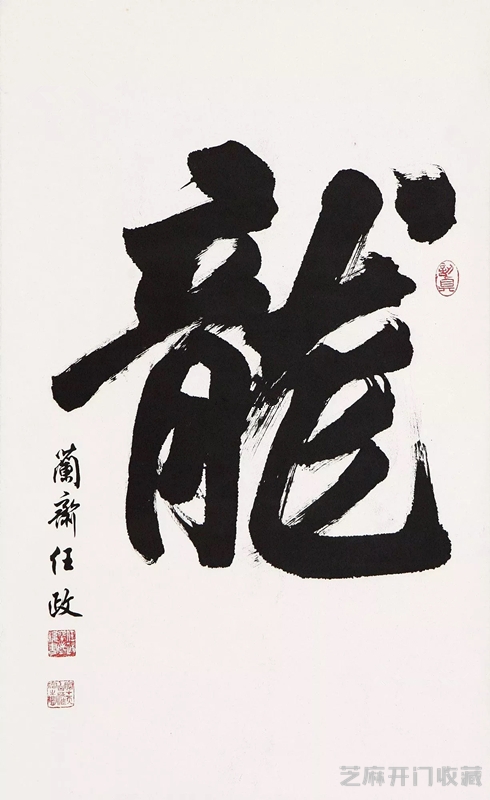 龍
蘭齋任政
芝麻开门收藏